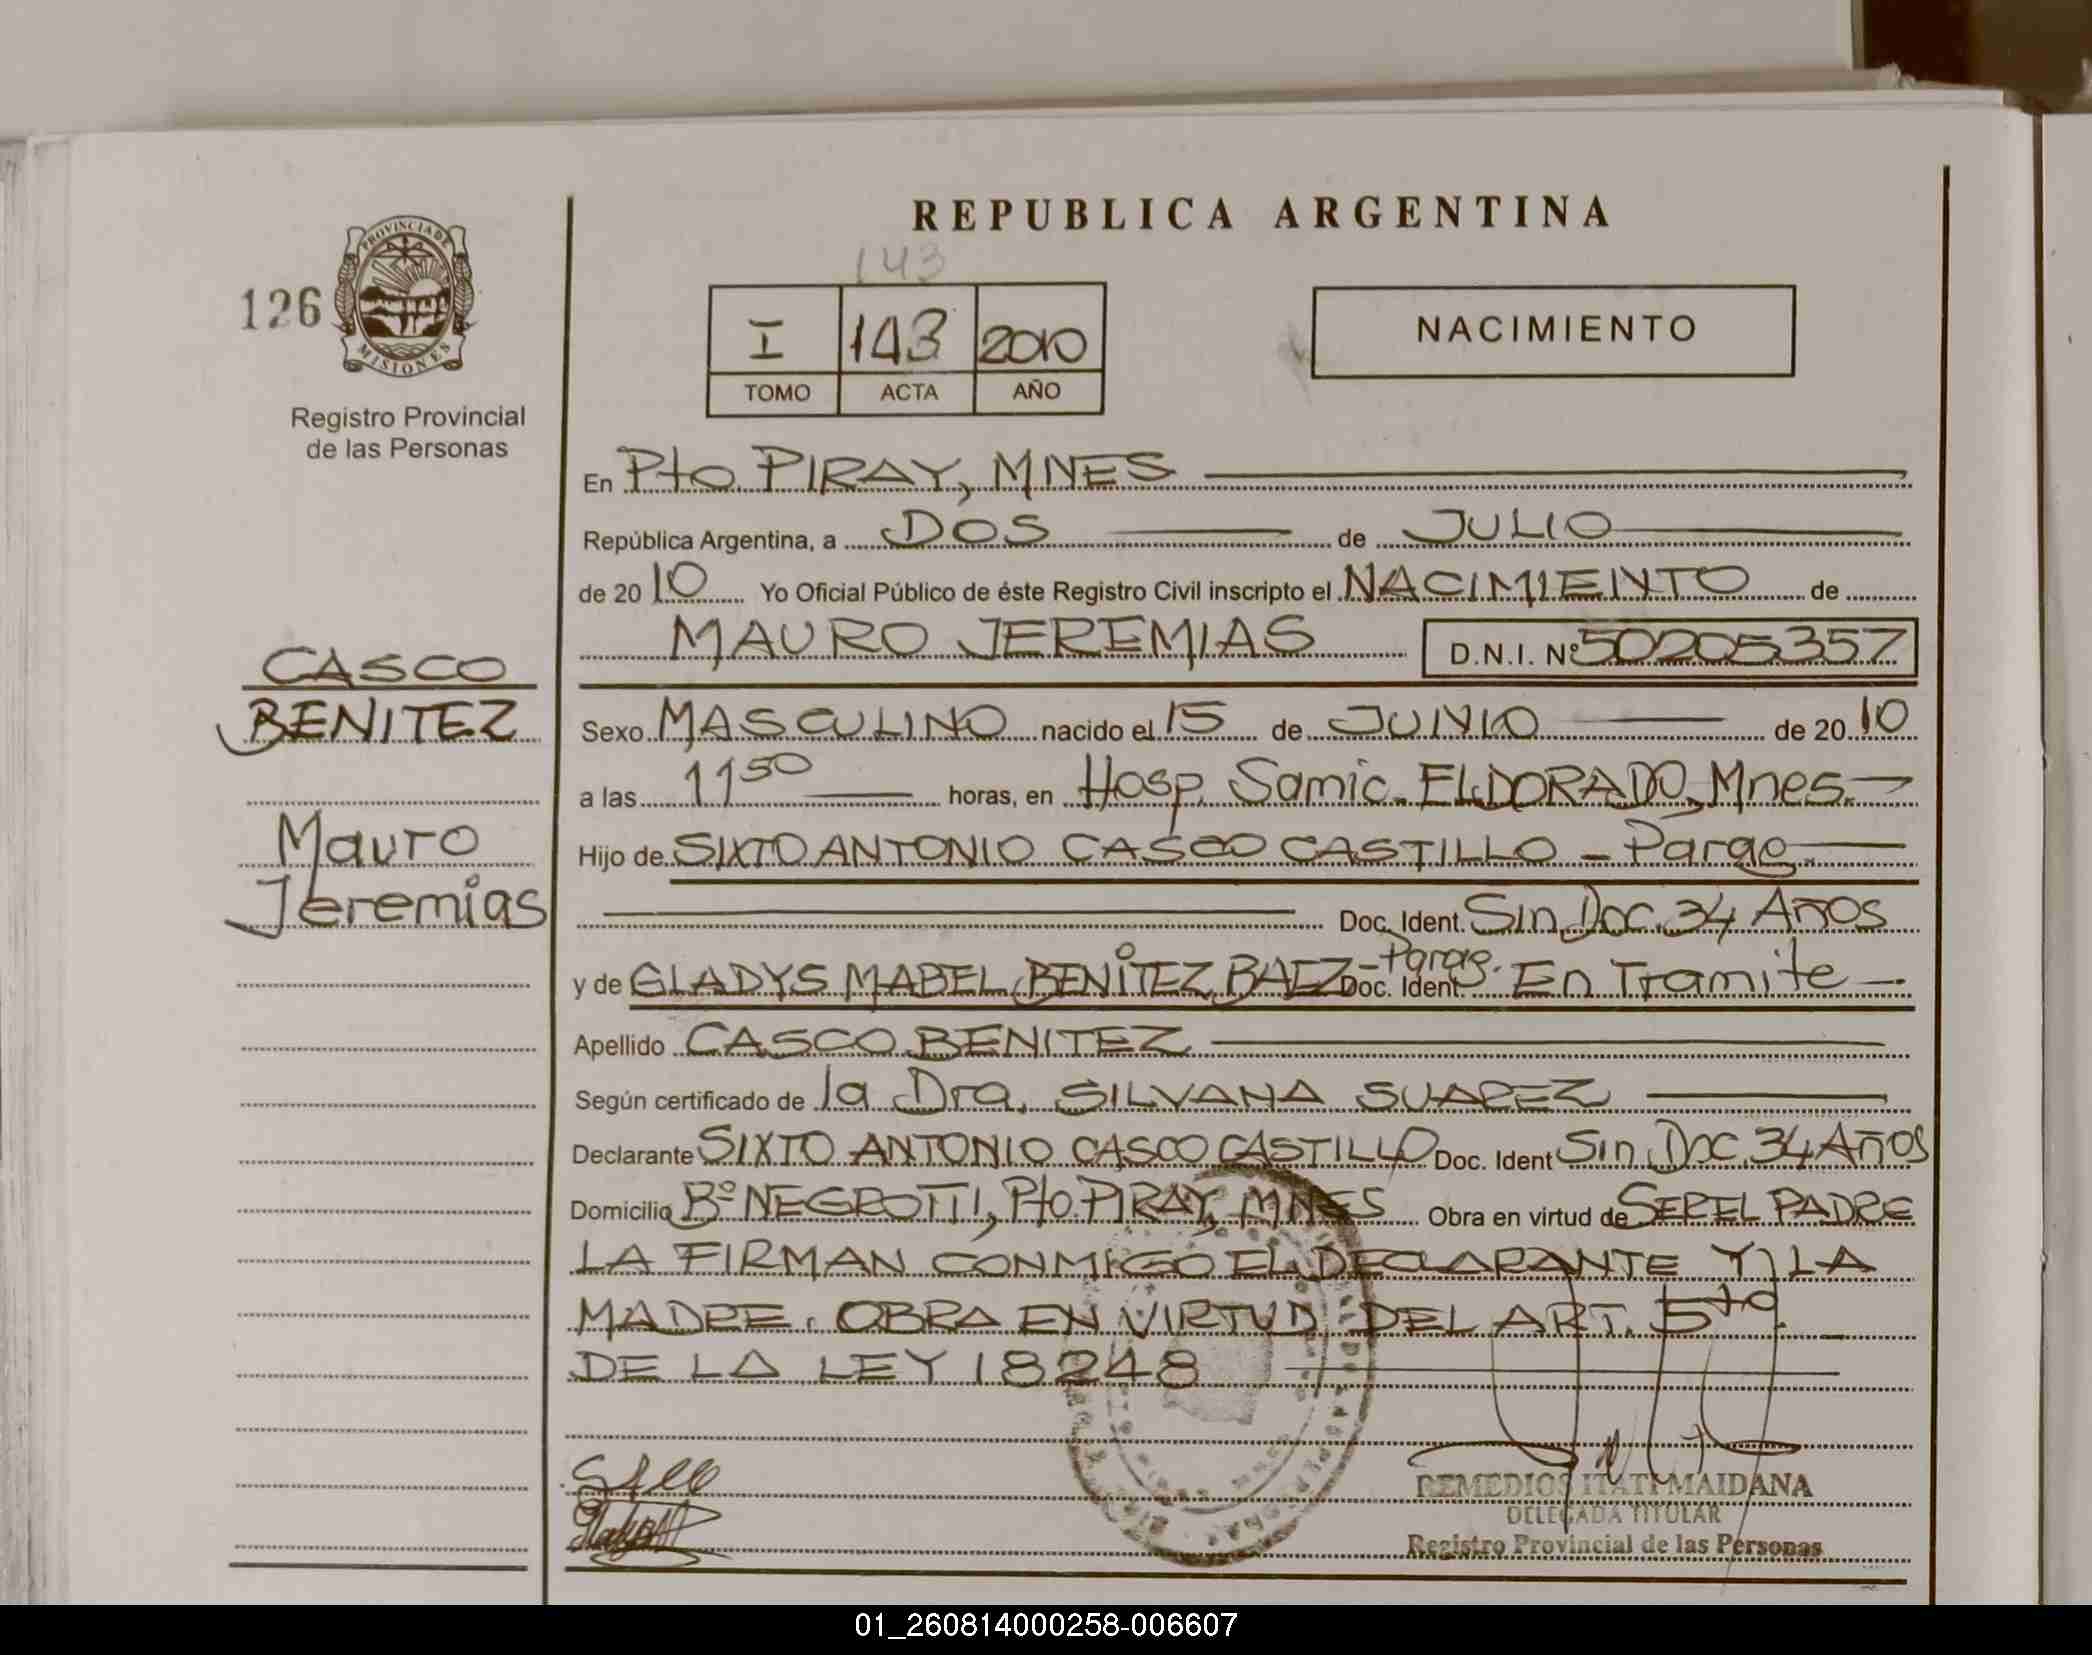 REPUBLICA ARGENTINA
143
126
PROVINCIA DE
MISIONES
Registro Provincial
de las Personas
I 143 2010
TOMO ACTA AÑO
NACIMIENTO
En Pto. PIRAY, MNES
República Argentina, a DOS de JULIO
de 2010 Yo Oficial Público de éste Registro Civil inscripto el NACIMIENTO de
MAURO JEREMIAS D.N.I. Nº 50205357
CASCO
BENITEZ
Mauro
Jeremias
Sexo MASCULINO nacido el 15 de JUNIO de 2010
a las 11 50 horas, en Hosp. Samic. ELDORADO, Mnes.
Hijo de SIXTO ANTONIO CASCO CASTILLO - Parag.
Doc. Ident. Sin Doc. 34 Años
y de GLADYS MABEL BENITEZ BAEZ - Parag. Doc. Ident. En Tramite
Apellido CASCO BENITEZ
Según certificado de la Dra. SILVANA SUAREZ
Declarante SIXTO ANTONIO CASCO CASTILLO Doc. Ident Sin Doc. 34 Años
Domicilio Bº NEGROTTI, Pto. PIRAY, MNES Obra en virtud de SER EL PADRE
LA FIRMAN CONMIGO EL DECLARANTE Y LA
MADRE. OBRA EN VIRTUD DEL ART. 5to.
DE LA LEY 18248
REMEDIOS ITATI MAIDANA
DELEGADA TITULAR
Registro Provincial de las Personas
01_260814000258-006607